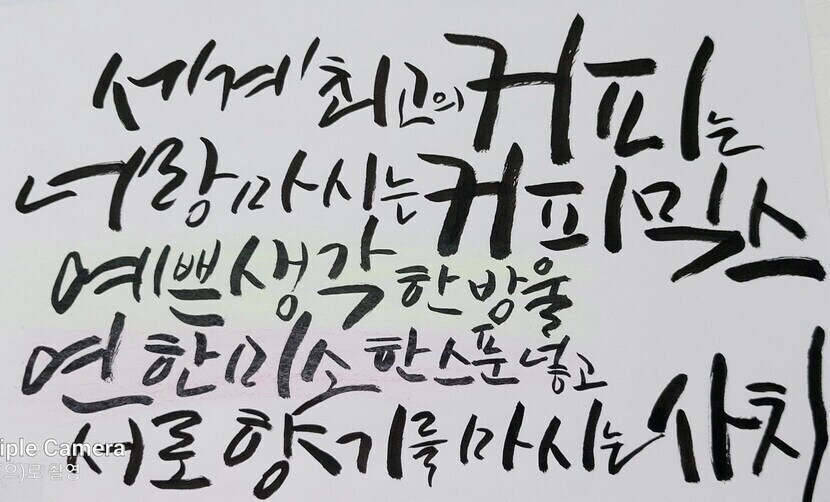 세계 최고의 커피는
너랑 마시는 커피믹스
예쁜생각 한방울
연한미소 한스푼 넣고
서로 향기를 마시는 사치
iple Camera
으)로 촬영